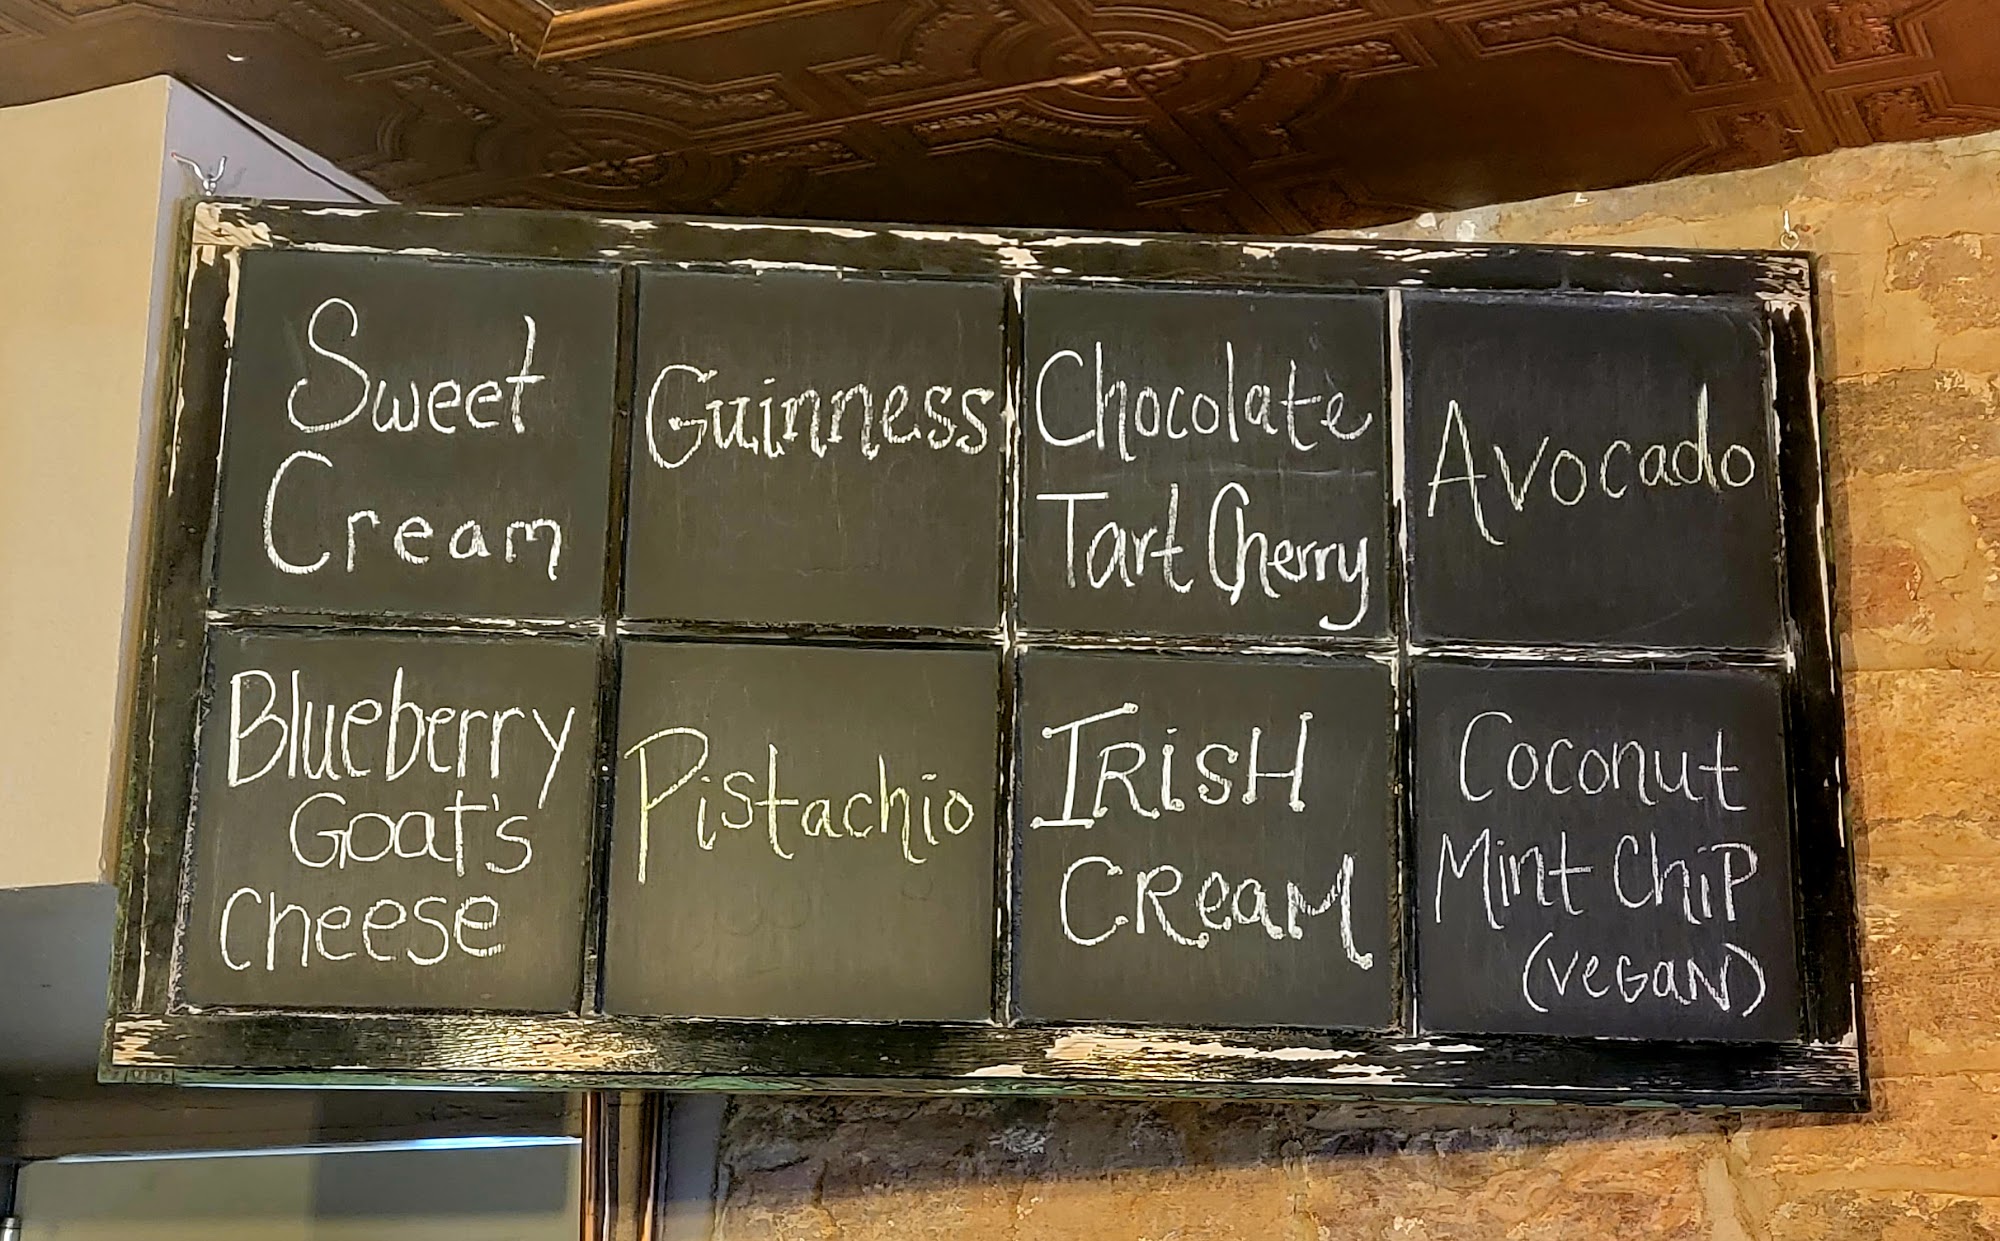 Sweet
Cream
Guinness
Chocolate
Tart Cherry
Avocado
Blueberry
Goat's
Cheese
Pistachio
IRiSH
CReaM
Coconut
Mint ChiP
(veGaN)